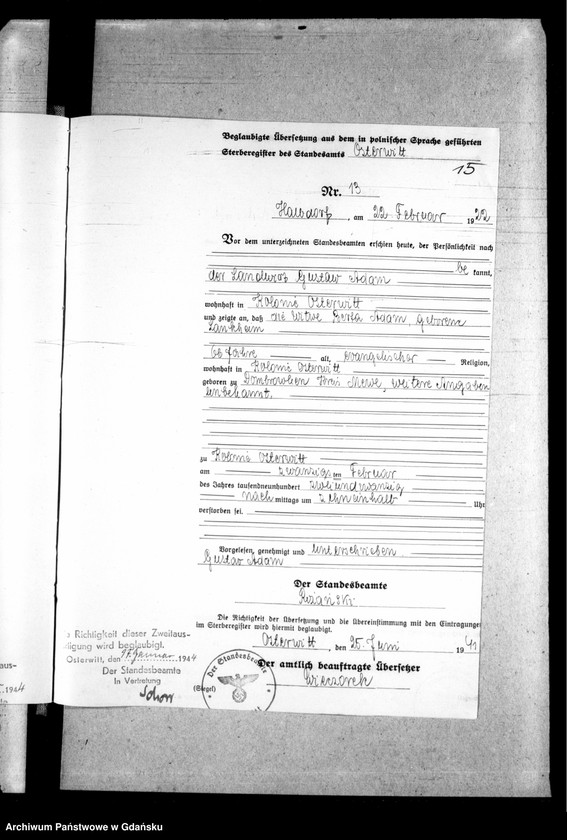 Beglaubigte Übersetzung aus dem in polnischer Sprache geführten
Sterberegister des Standesamts Osterwitt
15
Nr. 13
am 22 Februar 1922
Vor dem unterzeichneten Standesbeamten erschien heute, der Persönlichkeit nach
be kannt,
der Landwirt Gustaw Adam
wohnhaft in Kolonie Osterwitt
und zeigte an, daß die Witwe Berta Adam, geborene
66 Jahre alt, evangelischer Religion,
wohnhaft in Kolonie Osterwitt
geboren zu Dombrowken Kreis Mewe, weitere Angaben
unbekannt.
zu Kolonie Osterwitt
am zwanzigsten Februar
des Jahres tausendneunhundert zweiundzwanzig
nach mittags um zehneinhalb Uhr
verstorben sei.
Vorgelesen, genehmigt und unterschrieben
Gustav Adam
Der Standesbeamte
Die Richtigkeit der Übersetzung und die Übereinstimmung mit den Eintragungen
im Sterberegister wird hiermit beglaubigt.
Osterwitt, den 25. Juni 1941
Der amtlich beauftragte Übersetzer
(Siegel)
Wieczorek
Der Standesbeamte
Richtigkeit dieser Zweitaus-
tigung wird beglaubigt.
Osterwitt, den 17. Januar 1944
Der Standesbeamte
In Vertretung
aus-
1944
Archiwum Państwowe w Gdańsku